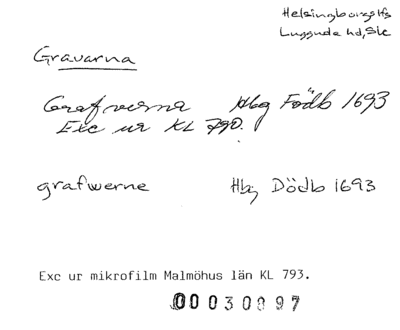 Helsingborgs lfs
Luggude hd, Sk
Gravarna
Grafverna Hbg Födb 1693
Exc ur KL 790.
grafwerne Hbg Dödb 1693
Exc ur mikrofilm Malmöhus län KL 793.
00030097